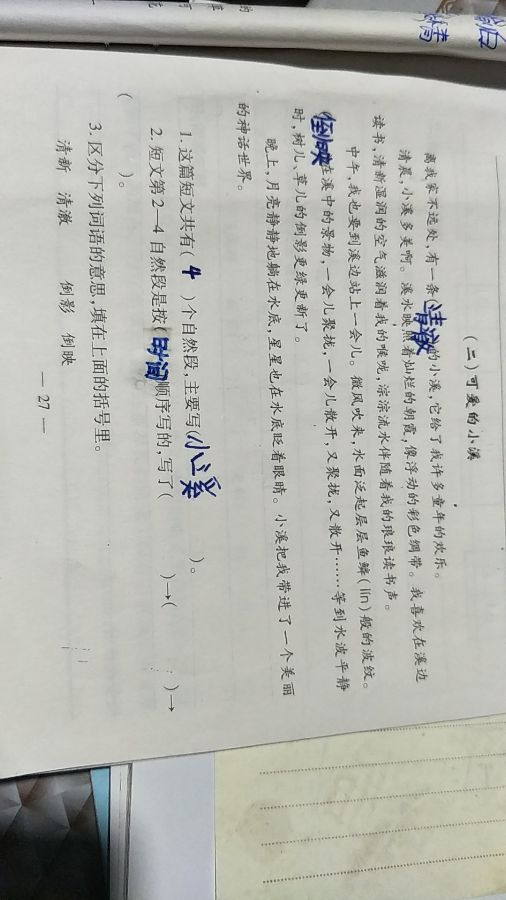 (二)可爱的小溪
离我家不远处,有一条(清澈)的小溪,它给了我许多童年的欢乐。
清晨,小溪多美啊。溪水映照着灿烂的朝霞,像浮动的彩色绸带。我喜欢在溪边
读书,清新湿润的空气滋润着我的喉咙,淙淙流水伴随着我的琅琅读书声。
中午,我也要到溪边站上一会儿。微风吹来,水面泛起层层鱼鳞(lín)般的波纹。
(倒映)在溪中的景物,一会儿聚拢,一会儿散开,又聚拢,又散开……等到水波平静
时,树儿、草儿的倒影更绿更新了。
晚上,月亮静静地躺在水底,星星也在水底眨着眼睛。小溪把我带进了一个美丽
的神话世界。
1. 这篇短文共有( 4 )个自然段,主要写(小溪 )。
2. 短文第2—4自然段是按(时间)顺序写的,写了( )→( )→
( )。
3. 区分下列词语的意思,填在上面的括号里。
清新 清澈 倒影 倒映
— 27 —